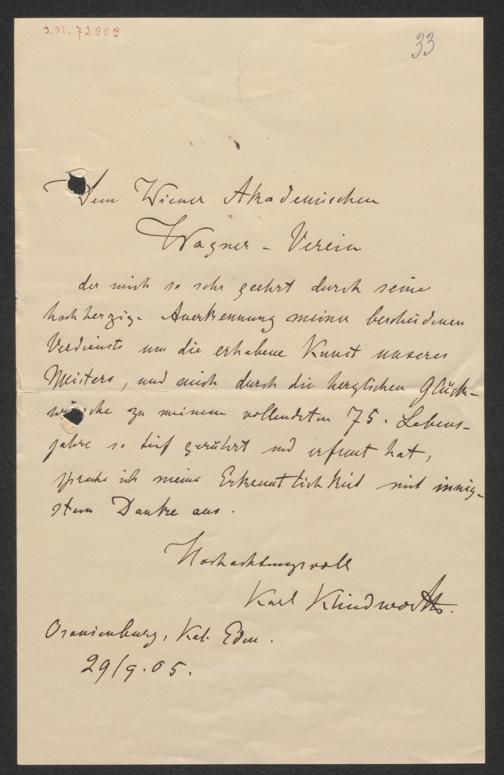 J.N. 72909
33
Dem Wiener Akademischen
Wagner-Verein
der mich so sehr geehrt durch seine
hochherzige Anerkennung meiner bescheidenen
Verdienste um die erhabene Kunst unseres
Meisters, und mich durch die herzlichen Glück-
wünsche zu meinem vollendeten 75. Lebens-
jahre so tief gerührt und erfreut hat,
spreche ich meine Erkenntlichkeit mit innig-
stem Danke aus.
Hochachtungsvoll
Karl Klindworth.
Oranienburg, Kol. Eden.
29/9.05.